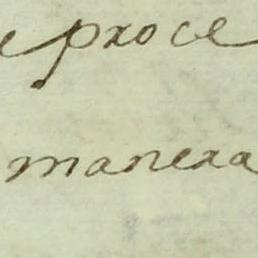 e proce
manera